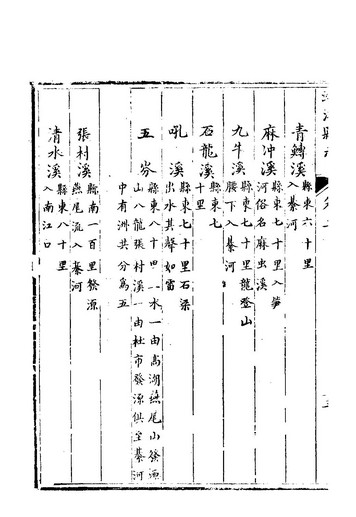 青鱄溪縣東六十里
入綦河
麻冲溪縣東七十里入筍
河俗名麻虫溪
九牛溪縣東七十里龍登山
腰下入綦河
石龍溪縣東七
十里
吼溪縣東七十里石梁
出水其聲如雷
五岔縣東八十四里一水一由高湖燕尾山發源
山八龍張村溪一由杜市發源俱至綦河
中有洲共分為五
張村溪縣南一百里發源
燕尾流入綦河
清水溪縣東八十里
入南江口